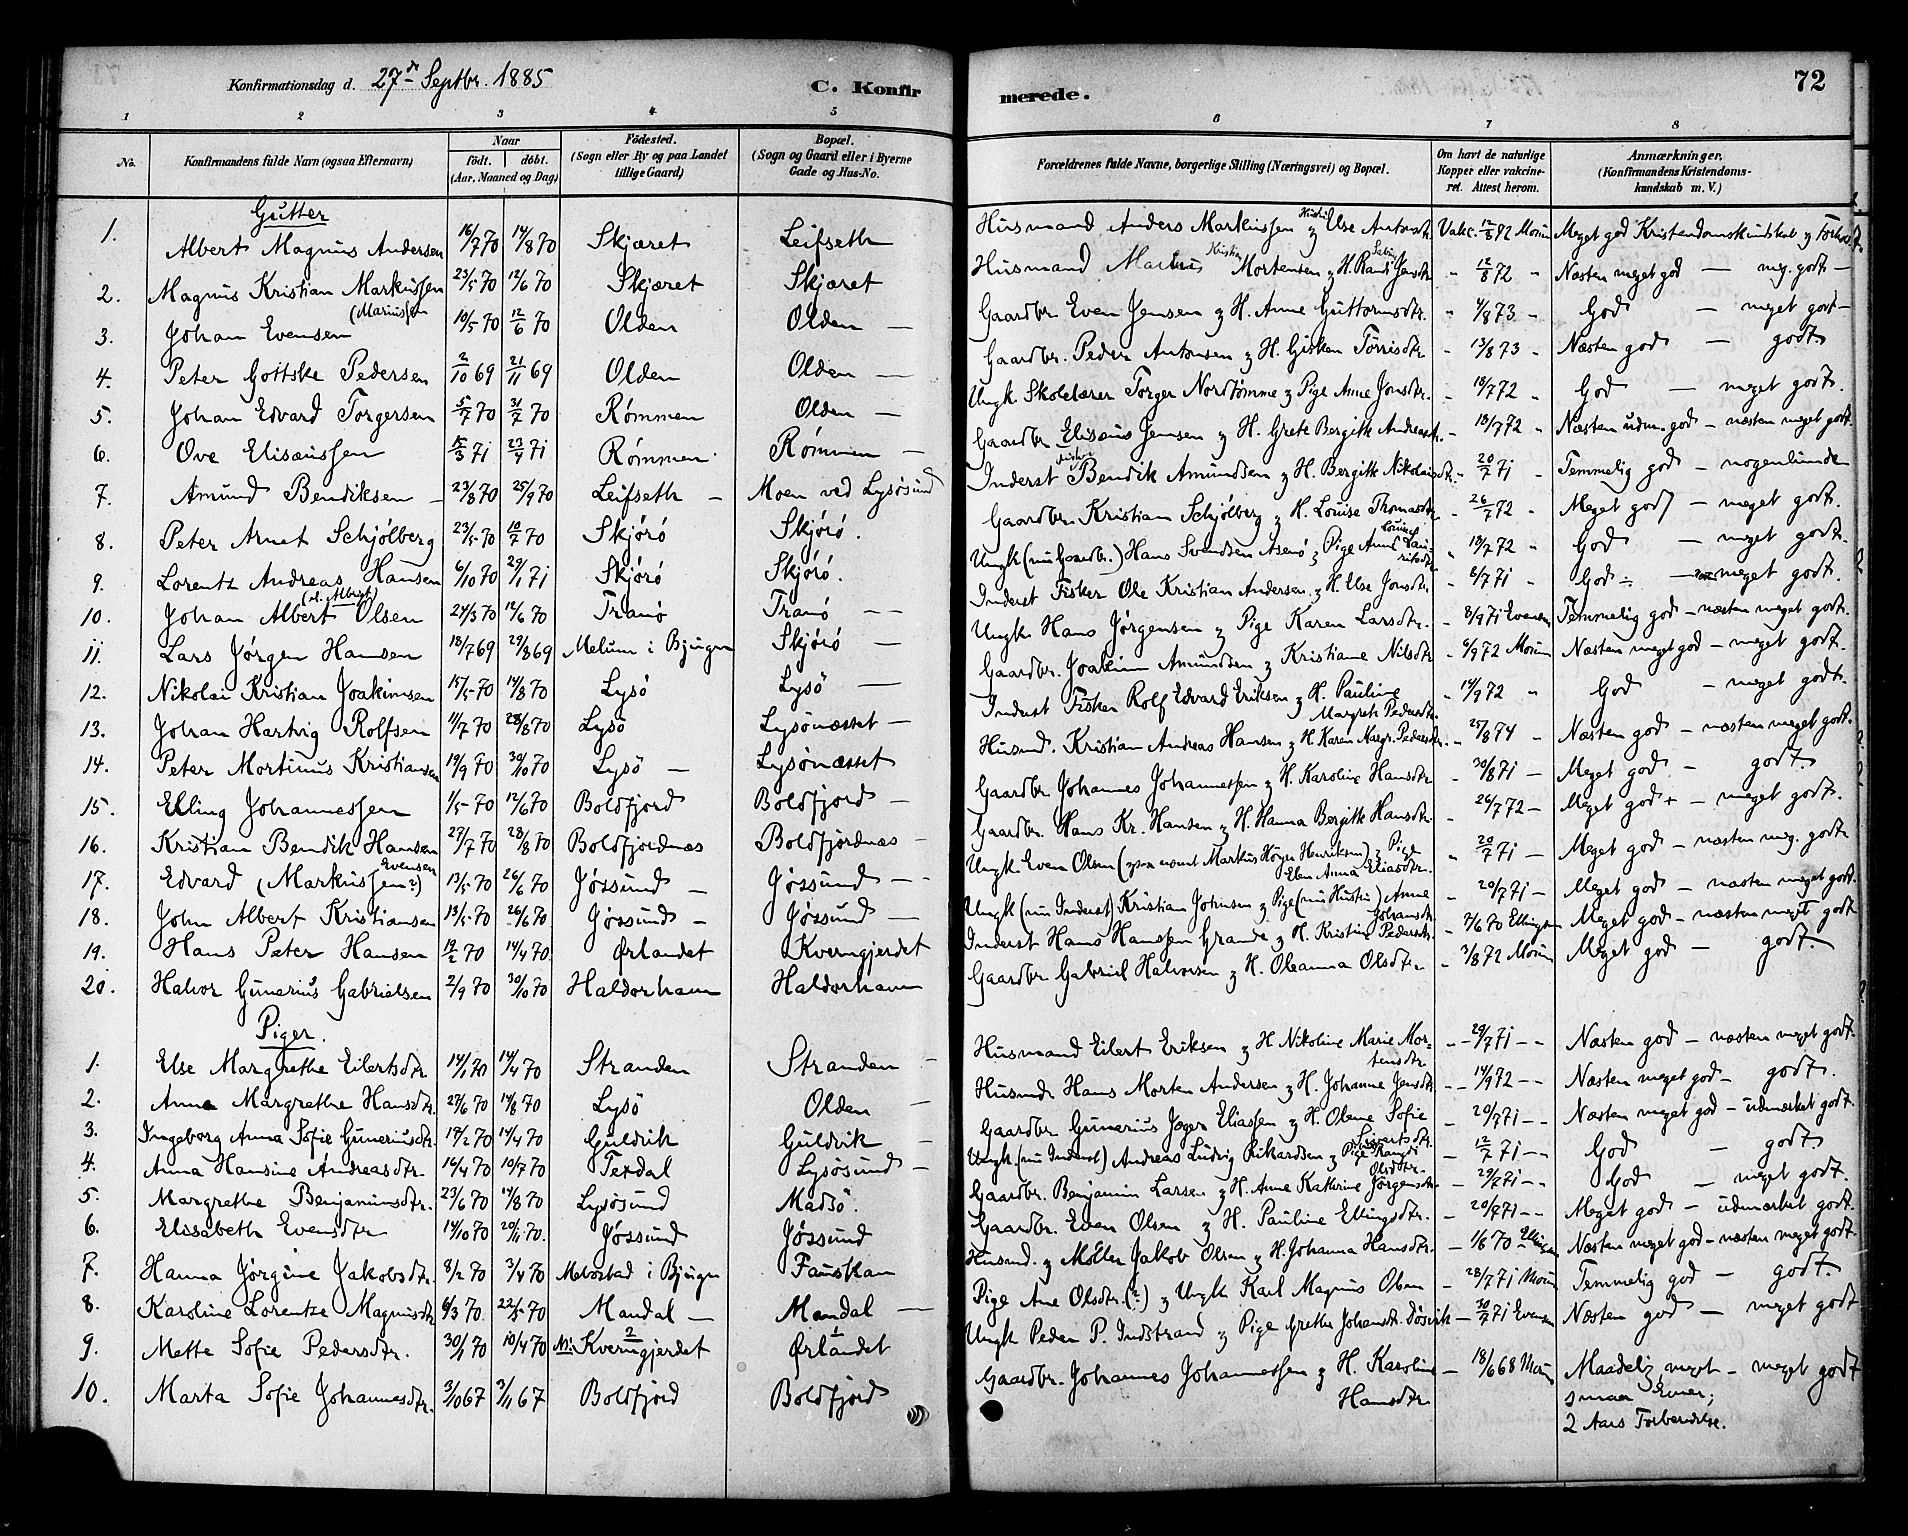 Konfirmationsdag d. 27de Septbr. 1885
C. Konfirmerede.
72
1 2 3 4 5 6 7 8
No. Konfirmandens fulde Navn (ogsaa Efternavn) Naar født. døbt. (Aar, Maaned og Dag) Fødested. (Sogn eller By og paa Landet tillige Gaard) Bopæl. (Sogn og Gaard eller i Byerne Gade og Hus-No. Forældrenes fulde Navne, borgerlige Stilling (Næringsvei) og Bopæl. Om havt de naturlige Kopper eller vakcineret. Attest herom. Anmærkninger. (Konfirmandens Kristendomskundskab m. V.)
Gutter
1. Albert Magnus Andersen 16/7 70 14/8 70 Skjæret Leifseth Husmand Anders Markussen & Hustru Else Antonsdtr. Vakc. 12/8 72 Moum Meget god Kristendomskundskab & Forhold
2. Magnus Kristian Markussen (Mariussen) 23/5 70 12/6 70 Skjæret Skjæret Husmand Markus Kristian Mortensen & H. Randi Jensdtr. " 12/8 72 " Næsten meget god — meg. godt —
3. Johan Evensen 10/5 70 12/6 70 Olden Olden — Gaardbr. Even Jensen & H. Anne Guttormsdtr. " 4/8 73 " God — meget godt —
4. Peter Gottske Pedersen 2/10 69 21/11 69 Olden Olden — Gaardbr. Peder Antonsen & H. Gisken Tørrisdtr. " 13/8 73 " Næsten god — godt
5. Johan Edvard Torgersen 5/7 70 31/7 70 Rømmen Olden — Ungk. Skolelærer Torger Nordtømme & Pige Anne Jonsdtr. " 18/7 72 " God — meget godt.
6. Ove Elisæussen 5/3 71 23/4 71 Rømmen Rømmen — Gaardbr. Elisæus Jensen & H. Grete Bergitte Andreasdtr. " 18/7 72 " Næsten udm. god — næsten meget godt.
7. Amund Bendiksen — 23/8 70 25/9 70 Leifseth — Moen ved Lysøsund Inderst Fisker Bendik Amundsen & H. Bergitte Nikolaisdtr. - 20/7 71 " Temmelig god — nogenlunde
8. Peter Arnet Schjølberg 23/5 70 10/7 70 Skjørø Skjørø. Gaardbr. Kristian Schjølberg & H. Louise Thomasdtr. - 26/7 72 " Meget god — meget godt.
9. Lorentz Andreas Hansen 6/10 70 29/1 71 Skjørø Skjørø. Ungk. (nu Gaardbr.) Hans Svendsen Asenø & Pige Anne Lovise Lauritsdtr. " 18/7 72 " God — meget godt.
10. Johan Albert (el. Albrigt) Olsen 24/3 70 12/6 70 Tranø Tranø — — Inderst Fisker Ole Kristian Andersen & H. Else Jonsdtr. " 8/7 71 " God ÷ — meget godt.
11. Lars Jørgen Hansen 18/7 69 29/8 69 Melum i Bjugn Skjørø — Ungk. Hans Jørgensen & Pige Karen Larsdtr. - 8/9 71 Evensen Temmelig god — næsten meget godt.
12. Nikolai Kristian Joakimsen 15/5 70 14/8 70 Lysø Lysø — Gaardbr. Joakim Amundsen & Kristiane Nilsdtr - 6/9 72 Moum Næsten meget god — meget godt.
13. Johan Hartvig Rolfsen 11/7 70 28/8 70 Lysø Lysønæsset — Inderst Fisker Rolf Edvard Eriksen & H. Pauline Margrete Pedersdtr. - 14/9 72 " God — meget godt.
14. Peter Mortinus Kristiansen 19/9 70 30/10 70 Lysø — Lysønæsset Husmd. Kristian Andreas Hansen & H. Karen Margr. Pedersdtr. - 25/8 74 - Næsten god — næsten meget godt.
15. Elling Johannessen 1/5 70 12/6 70 Boldfjord Boldfjord — Gaardbr. Johannes Johannessen & H. Karoline Hansdtr - 30/8 71 — Meget god — godt.
16. Kristian Bendik Hansen 27/7 70 28/8 70 Boldfjordnæs Boldfjordnæs — Gaardbr. Hans Kr. Hansen & H. Hanna Bergitte Hansdtr. - 26/7 72 — Meget god + — meget godt.
17. Edvard (Markussen?) Evensen 13/5 70 26/6 70 Jøssund — Jøssund — Ungk. Even Olsen (genannt Markus Høyer Henriksen) & Pige Elen Anna Eliasdtr. " 20/7 71 — Meget god — næsten meg. godt
18. John Albert Kristiansen 13/5 70 26/6 70 Jøssund — Jøssund — Ungk. (nu Inderst) Kristian Johnsen & Pige (nu Hustru) Anne Johansdtr. - 20/7 71 — Meget god — næsten meget godt.
19. Hans Peter Hansen 19/2 70 14/4 70 Ørlandet Kverngjerdet Inderst Hans Hanssen Grande & H. Kristine Pedersdtr. - 7/6 70 Ellingsen Meget god — næsten meget godt
20. Halvor Gunerius Gabrielsen 2/9 70 30/10 70 Haldorhavn Haldorhavn Gaardbr Gabriel Halvorsen & H. Oleanna Olsdtr - 3/8 72 Moum Meget god — godt.
Piger.
1. Else Margrethe Eilertsdtr 14/1 70 14/4 70 Stranden Stranden — Husmand Eilert Eriksen & H Nikoline Marie Mortensdtr - 29/7 71 - - Næsten god — næsten meget godt.
2. Anna Margrethe Hansdtr. 27/6 70 14/8 70 Lysø Olden — Husmd. Hans Morten Andersen & H. Johanne Jensdtr - 14/9 72 - - Næsten meget god — godt.
3. Ingeborg Anna Sofie Guneriusdtr. 17/2 70 14/4 70 Guldvik Guldvik — Gaardbr Gunerius Jæger Eliassen & H. Olene Sofie Sivertsdtr. - 20/7 71 - - Næsten meget god — udmærket godt.
4. Anna Hansine Andreasdtr 16/4 70 10/7 70 Terdal Lysøsund — Ungk. (nu Inderst) Andreas Ludvig Rikardsen & Pige Randi Olsdtr. - 12/7 71 - - God — godt
5. Margrethe Benjaminsdtr. 23/6 70 14/8 70 Lysøsund Madsø. Gaardbr. Benjamin Larsen & H. Anne Katherine Jørgensdtr. - 29/7 71 - - God — meget godt.
6. Elisabeth Evensdtr 14/10 70 20/11 70. Jøssund Jøssund Gaardbr. Even Olsen & H. Pauline Ellingsdtr. - 20/7 71 - - Meget god — udmærket godt.
7. Hanna Jørgine Jakobsdtr. 8/2 70 3/4 70 Mebostad i Bjugn Fauskan Husmd. & Møller Jakob Olsen & H. Johanna Hansdtr. - 1/6 70 Ellingsen Næsten meget god — næsten meget godt.
8. Karoline Lorentze Magnusdtr 6/3 70. 22/5 70 Mandal — Mandal — Pige Ane Olsdtr. (?) & Ungk Karl Magnus Olsen - 28/7 71 Moum Temmelig god — godt.
9. Mette Sofie Pedersdtr. 30/1 70 10/4 70 N: Kverngjerdet Ørlandet Ungk Peder P. Indstrand & Pige Grethe Johansdtr. Døsvik — 30/7 71 Evensen Næsten god — meget godt
10. Marta Sofie Johannesdtr. 3/10 67 3/11 67 Boldfjord Boldfjord Gaardbr. Johannes Johannessen & H. Karoline Hansdtr — 18/6 68 Moum Maadelig meget — meget godt
smaa Evner;
2 Aars Forberedelse.